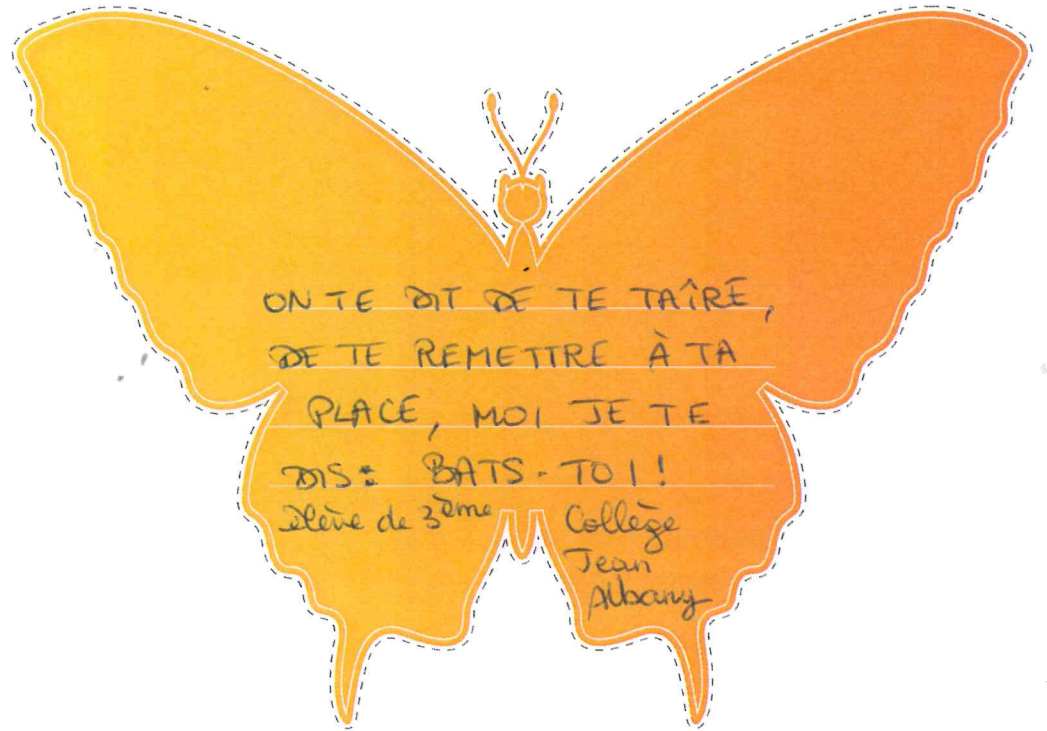 ON TE DIT DE TE TAÎRE,
DE TE REMETTRE À TA
PLACE, MOI JE TE
DIS : BATS-TOI !
Elève de 3ème
Collège
Jean
Albany